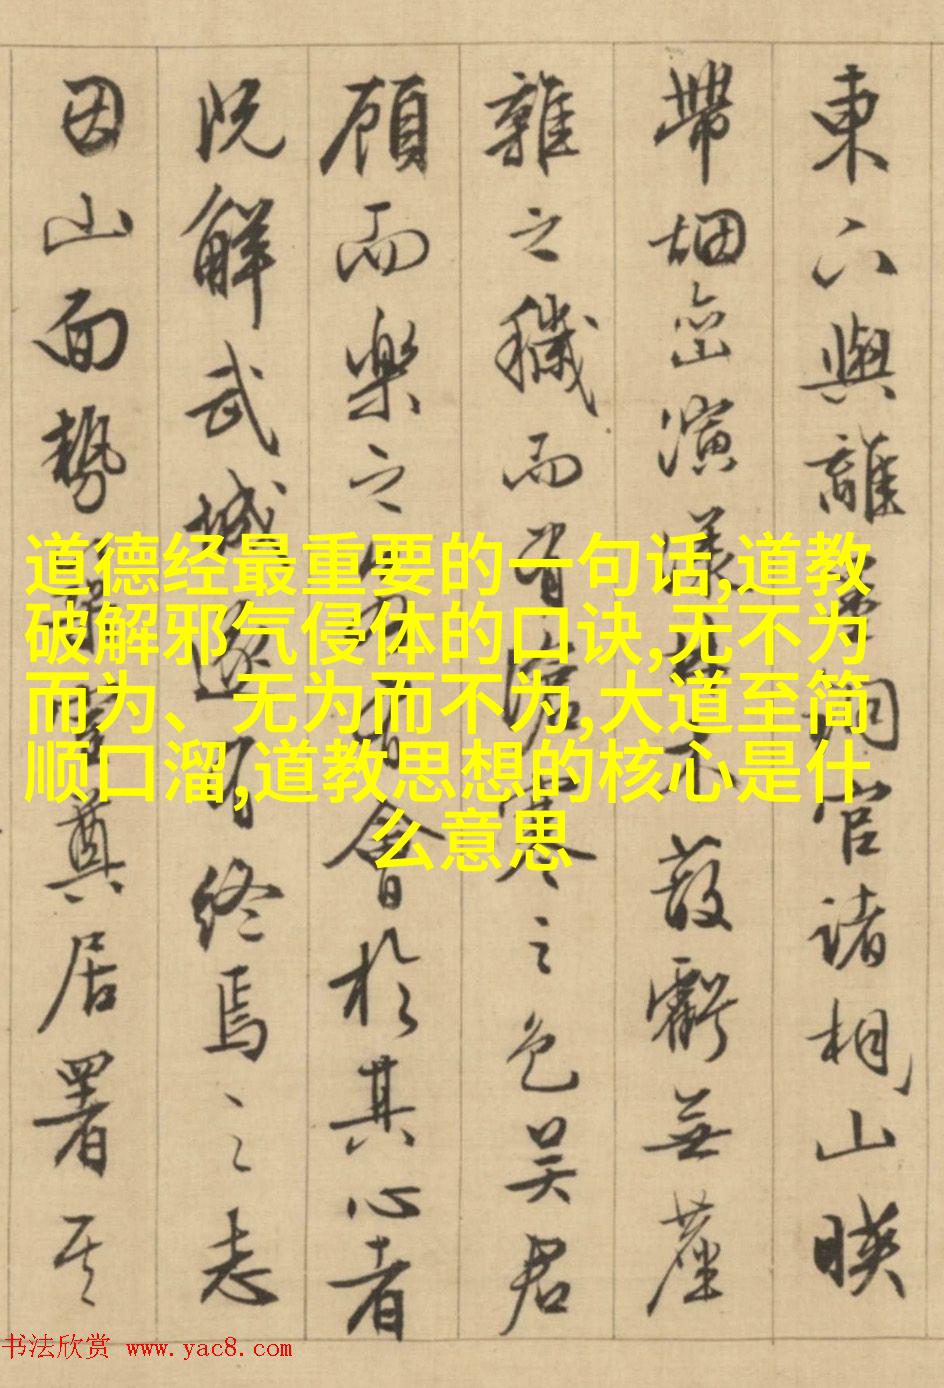 東六與離洞官諸相山暎
帶烟峦演漾不蔽虧無塵
雜之穢而有澹之色吴君
顧而樂之會於其心者
既解武城遂有終焉之志
因山面勢奠居署其
道德经最重要的一句话,道教
破解邪气侵体的口诀,无不为
而为、无为而不为,大道至简
顺口溜,道教思想的核心是什
么意思
书法欣赏 www.yac8.com